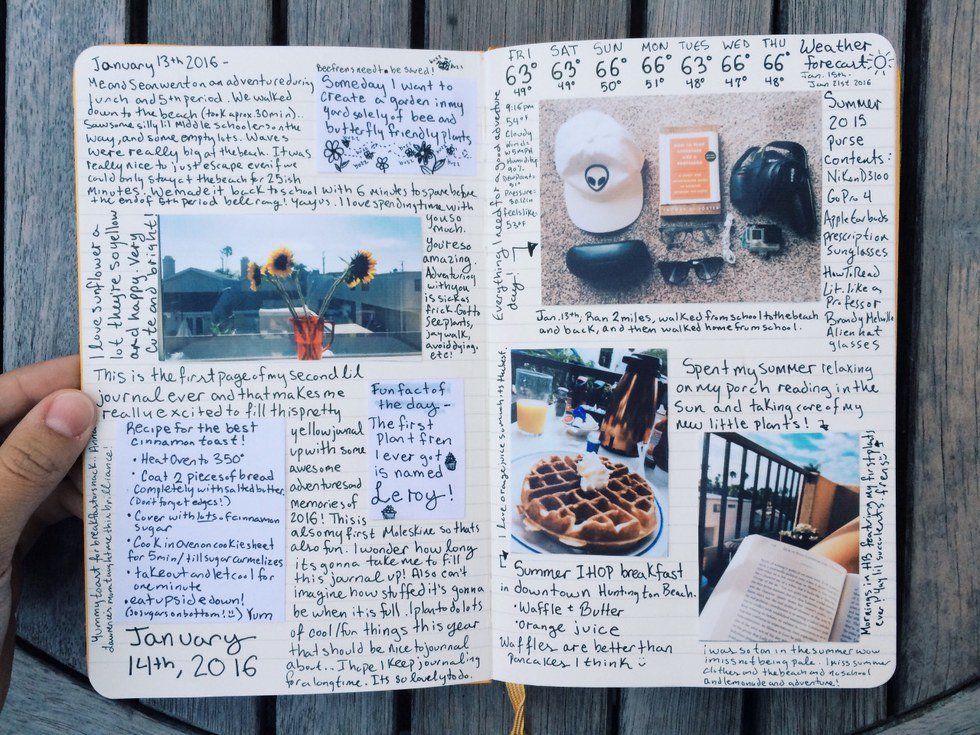 January 13th 2016 -
Me and Sean went on an adventure during
lunch and 5th period. We walked
down to the beach (took aprox. 30min)..
Saw some silly lil middle schoolers on the
way, and some empty lots. Waves
were really big at the beach. It was
really nice to just escape even if we
could only stay at the beach for 25ish
minutes! We made it back to school with 6 minutes to spare before
the end of 5th period bell rang! Yay us. I love spending time with
you so
much.
You're so
amazing.
Adventuring
with you
is sick as
frick. Got to
see plants,
jay walk,
avoid dying..
etc!
Bee frens need to be saved!
Someday I want to
create a garden in my
yard solely of bee and
butterfly friendly plants
I love sunflower a
lot they're so yellow
and happy. Very
cute and bright!
This is the first page of my second lil
journal ever and that makes me
really excited to fill this pretty
yellow journal
up with some
awesome
adventures and
memories of
2016! This is
also my first Moleskine so thats
also fun. I wonder how long
its gonna take me to fill
this journal up! Also can't
imagine how stuffed it's gonna
be when it is full. I plan to do lots
of cool/fun things this year
that should be nice to journal
about.. I hope I keep journaling
for a long time. Its so lovely to do.
Fun fact of
the day -
The first
plant fren
I ever got
is named
Leroy!
Recipe for the best
cinnamon toast!
• Heat Oven to 350°
• Coat 2 pieces of bread
completely with salted butter
(Don't forget edges!)
• Cover with lots of cinnamon
sugar
• Cook in Oven on cookie sheet
for 5min/till sugar carmelizes
• take out and let cool for
one minute
• eat upside down!
(so sugars on bottom!!:) Yum
Yummy toast for breakfast or snack..
January
14th, 2016
FRI SAT SUN MON TUES WED THU
63° 63° 66° 66° 63° 66° 66°
49° 49° 50° 51° 48° 47° 48°
Weather
forecast
Jan. 15th-
Jan 21st 2016
9:16pm
54°F
Cloudy
Winds:
W 5MPH
Humidity:
90%
Dewpoint:
51°
Pressure:
30.12in
feels like:
53°F
Everything I need for a good adventure
day!
Summer
2015
purse
contents:
Nikon D3100
GoPro 4
Apple Earbuds
prescription
sunglasses
How To Read
Lit. like a
Professor
Brandy Melville
Alien hat
glasses
Jan. 13th, Ran 2 miles, walked from school to the beach
and back, and then walked home from school.
I love orange juice so much its the best.
Summer IHOP breakfast
in downtown Huntington Beach.
• Waffle + Butter
• orange juice
Waffles are better than
pancakes I think :)
Spent my summer relaxing
on my porch reading in the
sun and taking care of my
new little plants!
Mornings in HB featuring my first plants
ever! Yay lil succulents frens!
i was so tan in the summer wow
i miss not being pale. I miss summer
clothes and the beach and no school
and lemonade and adventure!